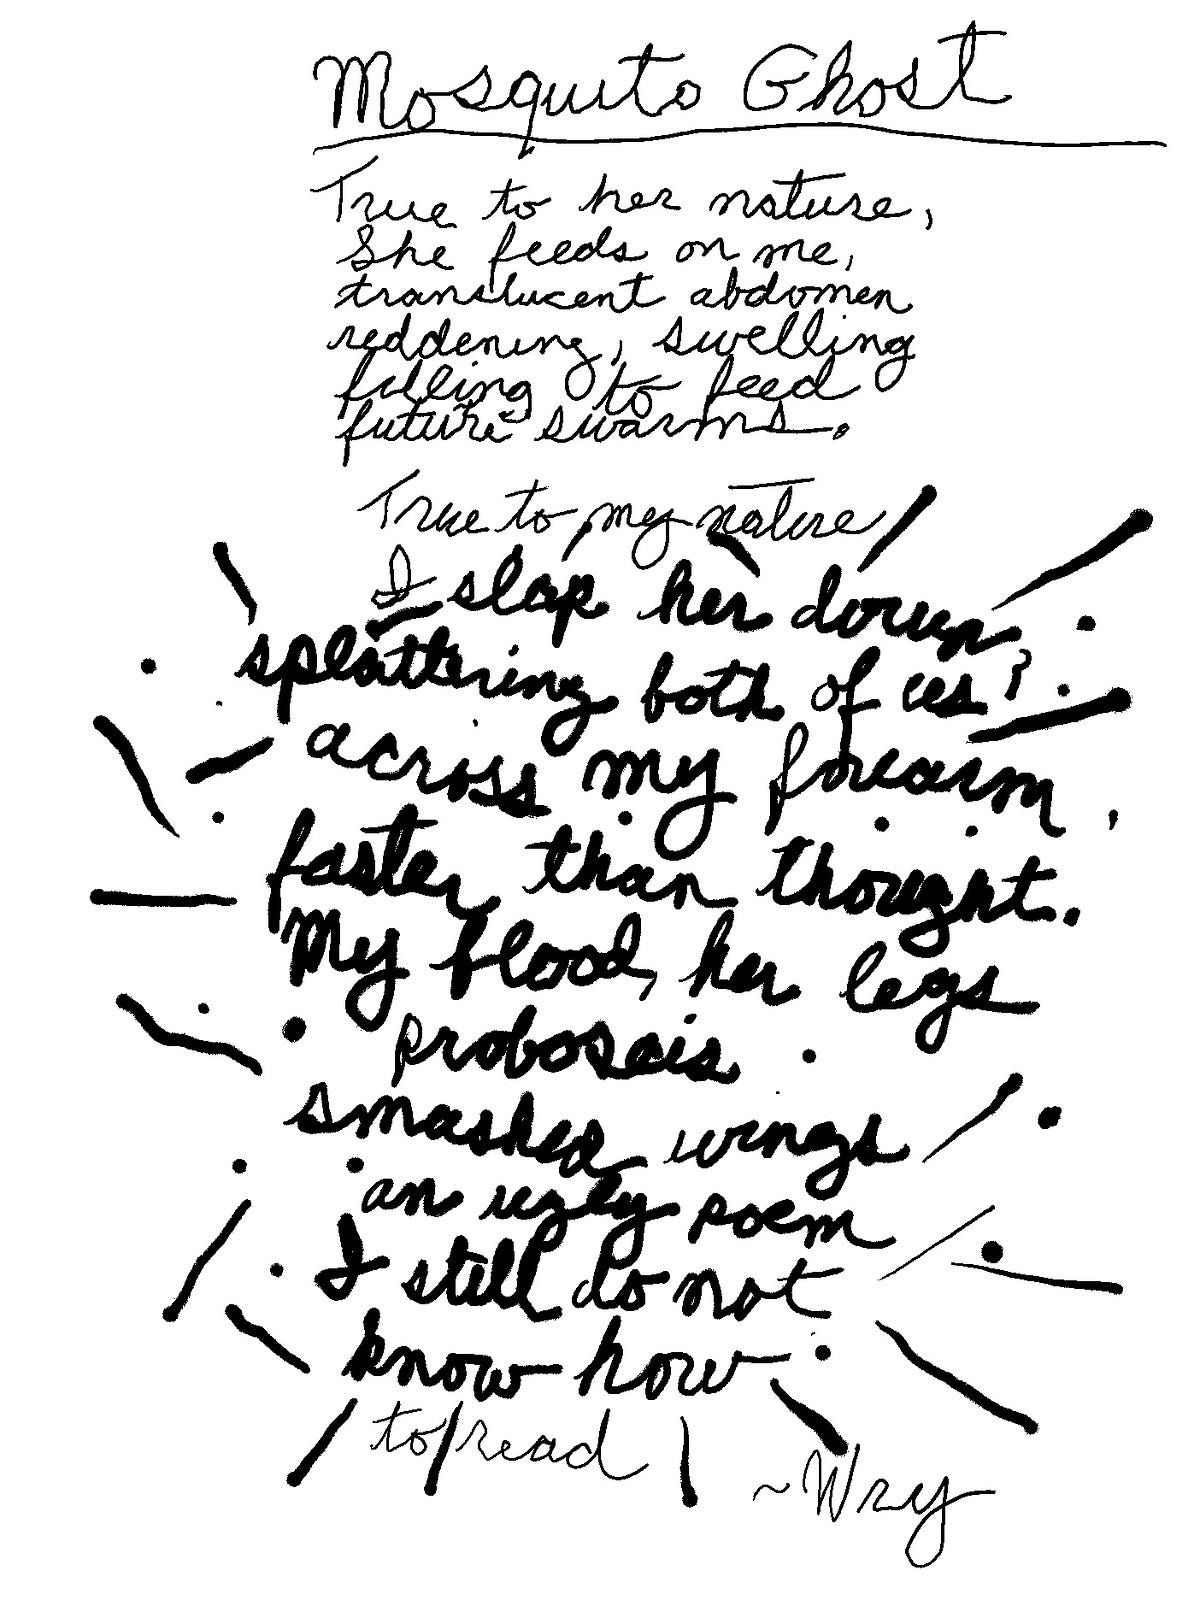 Mosquito Ghost
True to her nature,
She feeds on me,
translucent abdomen
reddening, swelling
filling to feed
future swarms.
True to my nature
I slap her down,
splattering both of us
across my forearm,
faster than thought.
My blood, her legs
proboscis
smashed wings
an ugly poem
I still do not
know how
to read
~Wry